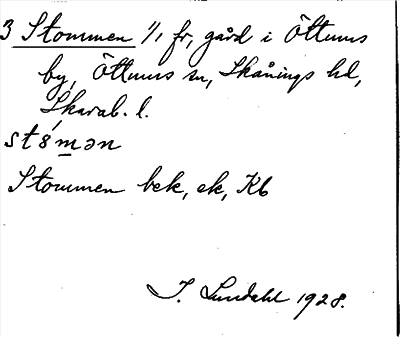 3 Stommen 1/1 fr, gård i Öttums
by, Öttums sn, Skånings hd,
Skarab. l.
st8́mən
Stommen bek, ek, Kb
I. Lundahl 1928.